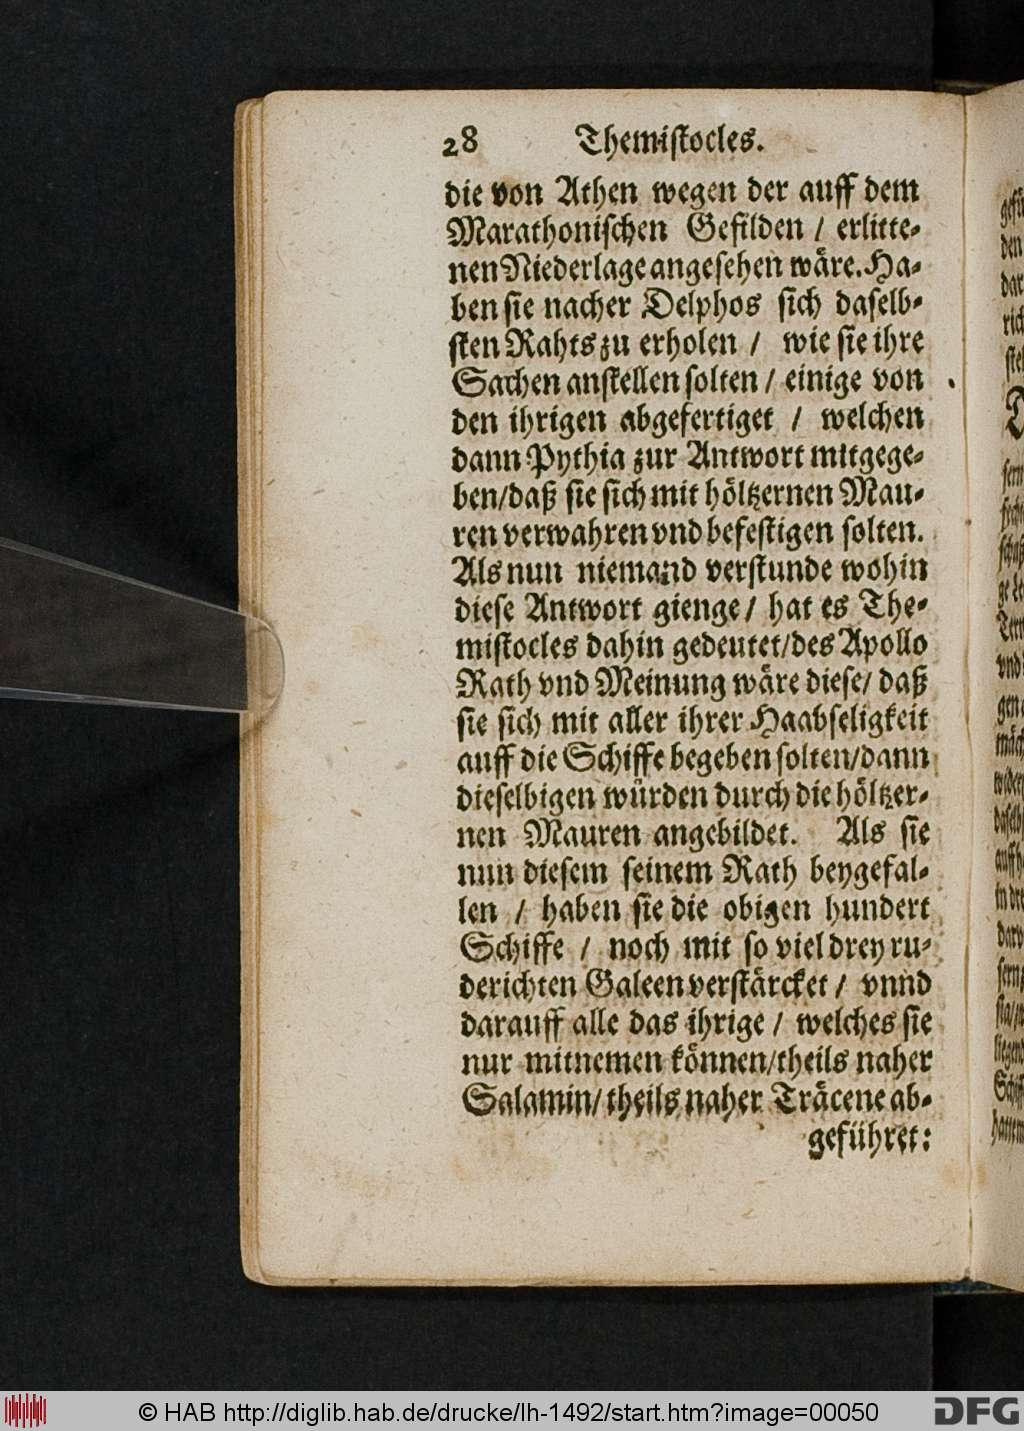 28 Themistocles.
die von Athen wegen der auff dem
Marathonischen Gefilden / erlitte-
nen Niederlage angesehen wäre. Ha-
ben sie nacher Delphos sich daselb-
sten Rahts zu erholen / wie sie ihre
Sachen anstellen solten / einige von
den ihrigen abgefertiget / welchen
dann Pythia zur Antwort mitgege-
ben/daß sie sich mit höltzernen Mau-
ren verwahren vnd befestigen solten.
Als nun niemand verstunde wohin
diese Antwort gienge / hat es The-
mistocles dahin gedeutet/des Apollo
Rath vnd Meinung wäre diese/ daß
sie sich mit aller ihrer Haabseligkeit
auff die Schiffe begeben solten/dann
dieselbigen würden durch die höltzer-
nen Mauren angebildet. Als sie
nun diesem seinem Rath beygefal-
len / haben sie die obigen hundert
Schiffe / noch mit so viel drey ru-
derichten Galeen verstärcket / vnnd
darauff alle das ihrige / welches sie
nur mitnemen können/theils naher
Salamin/ theils naher Träcene ab-
geführet:
© HAB http://diglib.hab.de/drucke/lh-1492/start.htm?image=00050
DFG